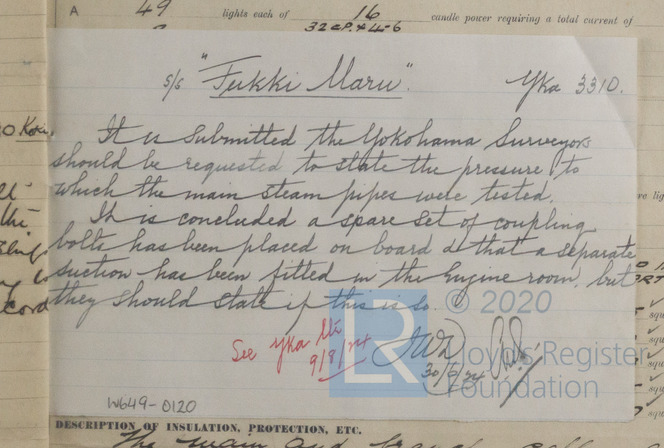 A 49 lights each of 16 candle power requiring a total current of
32 C.P. & 4-6
s/s "Fukki Maru". Yka 3310.
It is submitted the Yokohama Surveyors
should be requested to state the pressure to
which the main steam pipes were tested.
It is concluded a spare set of coupling
bolts has been placed on board & that a separate
suction has been fitted in the Engine room, but
they should state if this is so.
© 2020
Lloyd's Register
Foundation
LR
See Yka
9/8/24
30/6/24
W649-0120
DESCRIPTION OF INSULATION, PROTECTION, ETC.
The main and branch